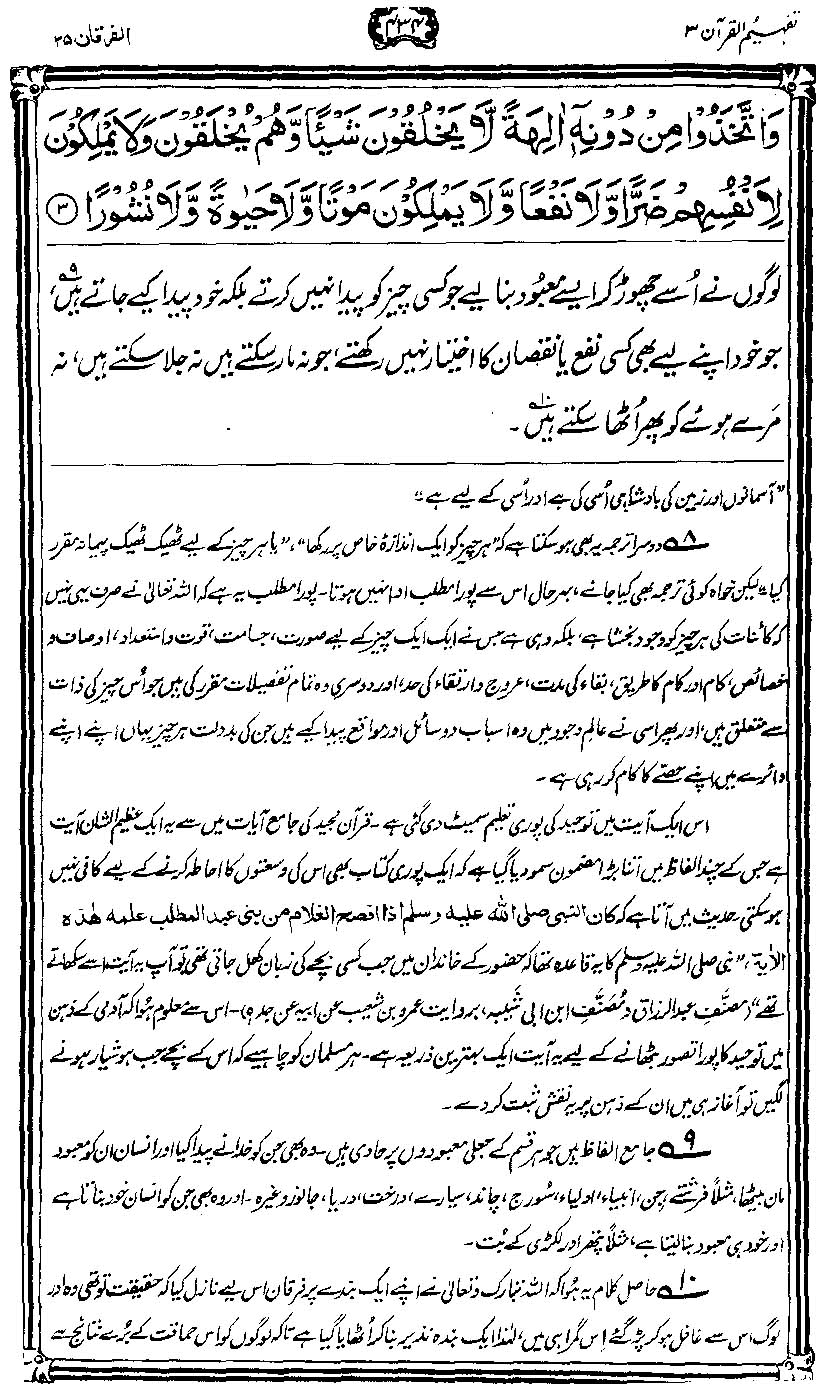 تفہیم القرآن ۳
۴۳۴
الفرقان ۲۵
وَاتَّخَذُوْا مِنْ دُوْنِهٖۤ اٰلِهَةً لَّا يَخْلُقُوْنَ شَيْئًا وَّهُمْ يُخْلَقُوْنَ وَلَا يَمْلِكُوْنَ
لِاَنْفُسِهِمْ ضَرًّا وَّلَا نَفْعًا وَّلَا يَمْلِكُوْنَ مَوْتًا وَّلَا حَيٰوةً وَّلَا نُشُوْرًا ﴿۳﴾
لوگوں نے اُسے چھوڑ کر ایسے معبُود بنا لیے جو کسی چیز کو پیدا نہیں کرتے بلکہ خود پیدا کیے جاتے ہیں،۹
جو خود اپنے لیے بھی کسی نفع یا نقصان کا اختیار نہیں رکھتے، جو نہ مار سکتے ہیں نہ جِلا سکتے ہیں، نہ
مَرے ہوئے کو پھر اُٹھا سکتے ہیں۱۰۔
”آسمانوں اور زمین کی بادشاہی اُسی کی ہے اور اُسی کے لیے ہے“
۸ دوسرا ترجمہ یہ بھی ہو سکتا ہے کہ ”ہر چیز کو ایک اندازۂ خاص پر رکھا“، ”یا ہر چیز کے لیے ٹھیک ٹھیک پیمانہ مقرر
کیا“ لیکن خواہ کوئی ترجمہ بھی کیا جائے، بہرحال اس سے پورا مطلب ادا نہیں ہوتا۔ پورا مطلب یہ ہے کہ اللہ تعالیٰ نے صرف یہی نہیں
کہ کائنات کی ہر چیز کو وجود بخشا ہے، بلکہ وہی ہے جس نے ایک ایک چیز کے لیے صورت، جسامت، قوت و استعداد، اوصاف و
خصائص، کام اور کام کا طریق، بقاء کی مدت، عروج و ارتقاء کی حد، اور دوسری وہ تمام تفصیلات مقرر کی ہیں جو اُس چیز کی ذات
سے متعلق ہیں، اور پھر اسی نے عالمِ وجود میں وہ اسباب و وسائل اور مواقع پیدا کیے ہیں جن کی بدولت ہر چیز یہاں اپنے اپنے
دائرے میں اپنے حصّے کا کام کر رہی ہے۔
اس ایک آیت میں توحید کی پوری تعلیم سمیٹ دی گئی ہے۔ قرآن مجید کی جامع آیات میں سے یہ ایک عظیم الشان آیت
ہے جس کے چند الفاظ میں اتنا بڑا مضمون سمو دیا گیا ہے کہ ایک پوری کتاب بھی اس کی وسعتوں کا احاطہ کرنے کے لیے کافی نہیں
ہو سکتی۔ حدیث میں آتا ہے کہ کان النبی صلی اللہ علیہ وسلم اذا افصح الغلام من بنی عبد المطلب علمہ ھٰذہ
الاٰیۃ، ”نبی صلی اللہ علیہ وسلم کا یہ قاعدہ تھا کہ حضور کے خاندان میں جب کسی بچے کی زبان کھل جاتی تھی تو آپ یہ آیت اسے سکھاتے
تھے“ (مصنَّف عبدالرزاق و مُصنَّف ابن ابی شَیبہ، بروایت عمرو بن شعیب عن ابیہ عن جدہٖ)۔ اس سے معلوم ہُوا کہ آدمی کے ذہن
میں توحید کا پورا تصور بٹھانے کے لیے یہ آیت ایک بہترین ذریعہ ہے۔ ہر مسلمان کو چاہیے کہ اس کے بچے جب ہوشیار ہونے
لگیں تو آغاز ہی میں ان کے ذہن پر یہ نقش ثبت کر دے۔
۹ جامع الفاظ ہیں جو ہر قسم کے جعلی معبودوں پر حاوی ہیں۔ وہ بھی جن کو خدا نے پیدا کیا اور انسان ان کو معبود
مان بیٹھا، مثلاً فرشتے، جن، انبیاء، اولیاء، سُورج، چاند، سیارے، درخت، دریا، جانور وغیرہ۔ اور وہ بھی جن کو انسان خود بناتا ہے
اور خود ہی معبود بنا لیتا ہے، مثلاً پتھر اور لکڑی کے بُت۔
۱۰ حاصلِ کلام یہ ہُوا کہ اللہ تبارک و تعالیٰ نے اپنے ایک بندے پر فرقان اس لیے نازل کیا کہ حقیقت تو تھی وہ اور
لوگ اس سے غافل ہو کر پڑ گئے اِس گمراہی میں، لہٰذا ایک بندہ نذیر بنا کر اُٹھایا گیا ہے تاکہ لوگوں کو اس حماقت کے بُرے نتائج سے